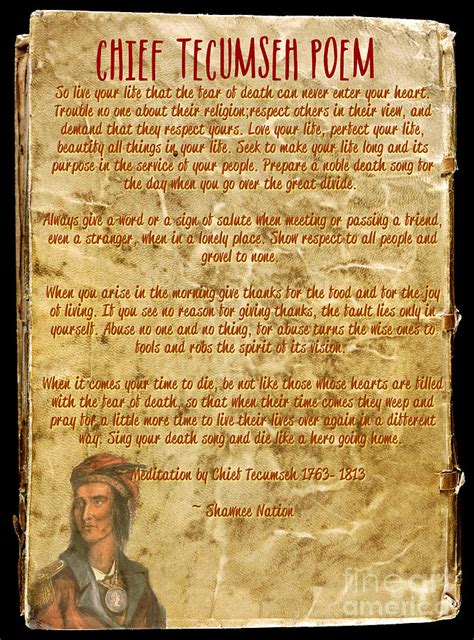 CHIEF TECUMSEH POEM
So live your life that the fear of death can never enter your heart.
Trouble no one about their religion;respect others in their view, and
demand that they respect yours. Love your life, perfect your life,
beautify all things in your life. Seek to make your life long and its
purpose in the service of your people. Prepare a noble death song for
the day when you go over the great divide.
Always give a word or a sign of salute when meeting or passing a friend,
even a stranger, when in a lonely place. Show respect to all people and
grovel to none.
When you arise in the morning give thanks for the food and for the joy
of living. If you see no reason for giving thanks, the fault lies only in
yourself. Abuse no one and no thing, for abuse turns the wise ones to
fools and robs the spirit of its vision.
When it comes your time to die, be not like those whose hearts are filled
with the fear of death, so that when their time comes they weep and
pray for a little more time to live their lives over again in a different
way. Sing your death song and die like a hero going home.
Meditation by Chief Tecumseh 1763- 1813
~ Shawnee Nation
fineart
america